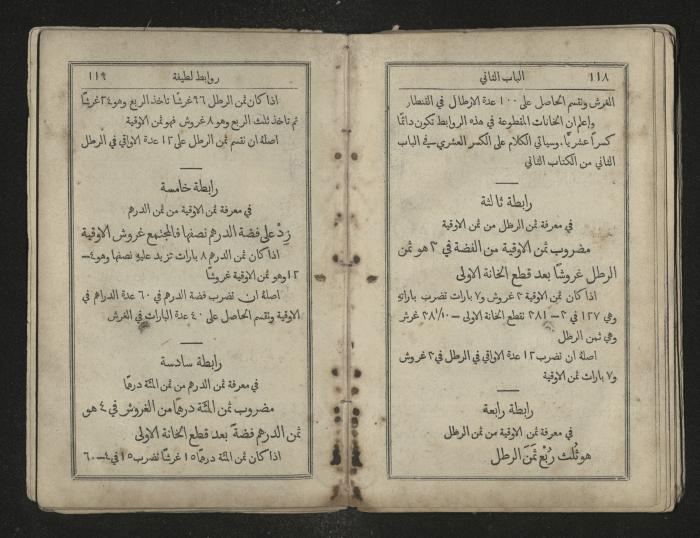 ١١٨ الباب الثاني
الغرش ونقسم الحاصل على ١٠٠ عدة الارطال في القنطار
واعلم ان الخانات المقطوعة في هذه الروابط تكون دائمًا
كسرًا عشريًا. وسياتي الكلام على الكسر العشري في الباب
الثاني من الكتاب الثاني
رابطة ثالثة
في معرفة ثمن الرطل من ثمن الاوقية
مضروب ثمن الاوقية من الفضة في ٣ هو ثمن
الرطل غروشًا بعد قطع الخانة الاولى
اذا كان ثمن الاوقية ٣ غروش و٧ بارات تضرب بارات
وهي ١٢٧ في ٣ – ٣٨١ نقطع الخانة الاولى – ٣٨ ١/١٠ غرش
وهي ثمن الرطل
اصله ان نضرب ١٢ عدة الاواقي في الرطل في ٣ غروش
و٧ بارات ثمن الاوقية
رابطة رابعة
في معرفة ثمن الاوقية من ثمن الرطل
هو ثُلث رُبْع ثمَنَ الرطل
روابط لطيفة ١١٩
اذا كان ثمن الرطل ٩٦ غرشًا تاخذ الربع وهو ٢٤ غرشًا
ثم تاخذ ثلث الربع وهو ٨ غروش فهو ثمن الاوقية
اصله ان نقسم ثمن الرطل على ١٢ عدة الاواقي في الرطل
رابطة خامسة
في معرفة ثمن الاوقية من ثمن الدرهم
زِدْ على فضة الدرهم نصفها فالمجتمع غروش الاوقية
اذا كان ثمن الدرهم ٨ بارات تزيد عليه نصفها وهو ٤–
١٢ وهو ثمن الاوقية غروشًا
اصله ان تضرب فضة الدرهم في ٦٠ عدة الدراهم في
الاوقية ونقسم الحاصل على ٤٠ عدة البارات في الغرش
رابطة سادسة
في معرفة ثمن الدرهم من ثمن المئة درهمًا
مضروب ثمن المئة درهمًا من الغروش في ٤ هو
ثمن الدرهم فضةً بعد قطع الخانة الاولى
اذا كان ثمن المئة درهمًا ١٥ غرشًا نضرب ١٥ في ٤–٦٠